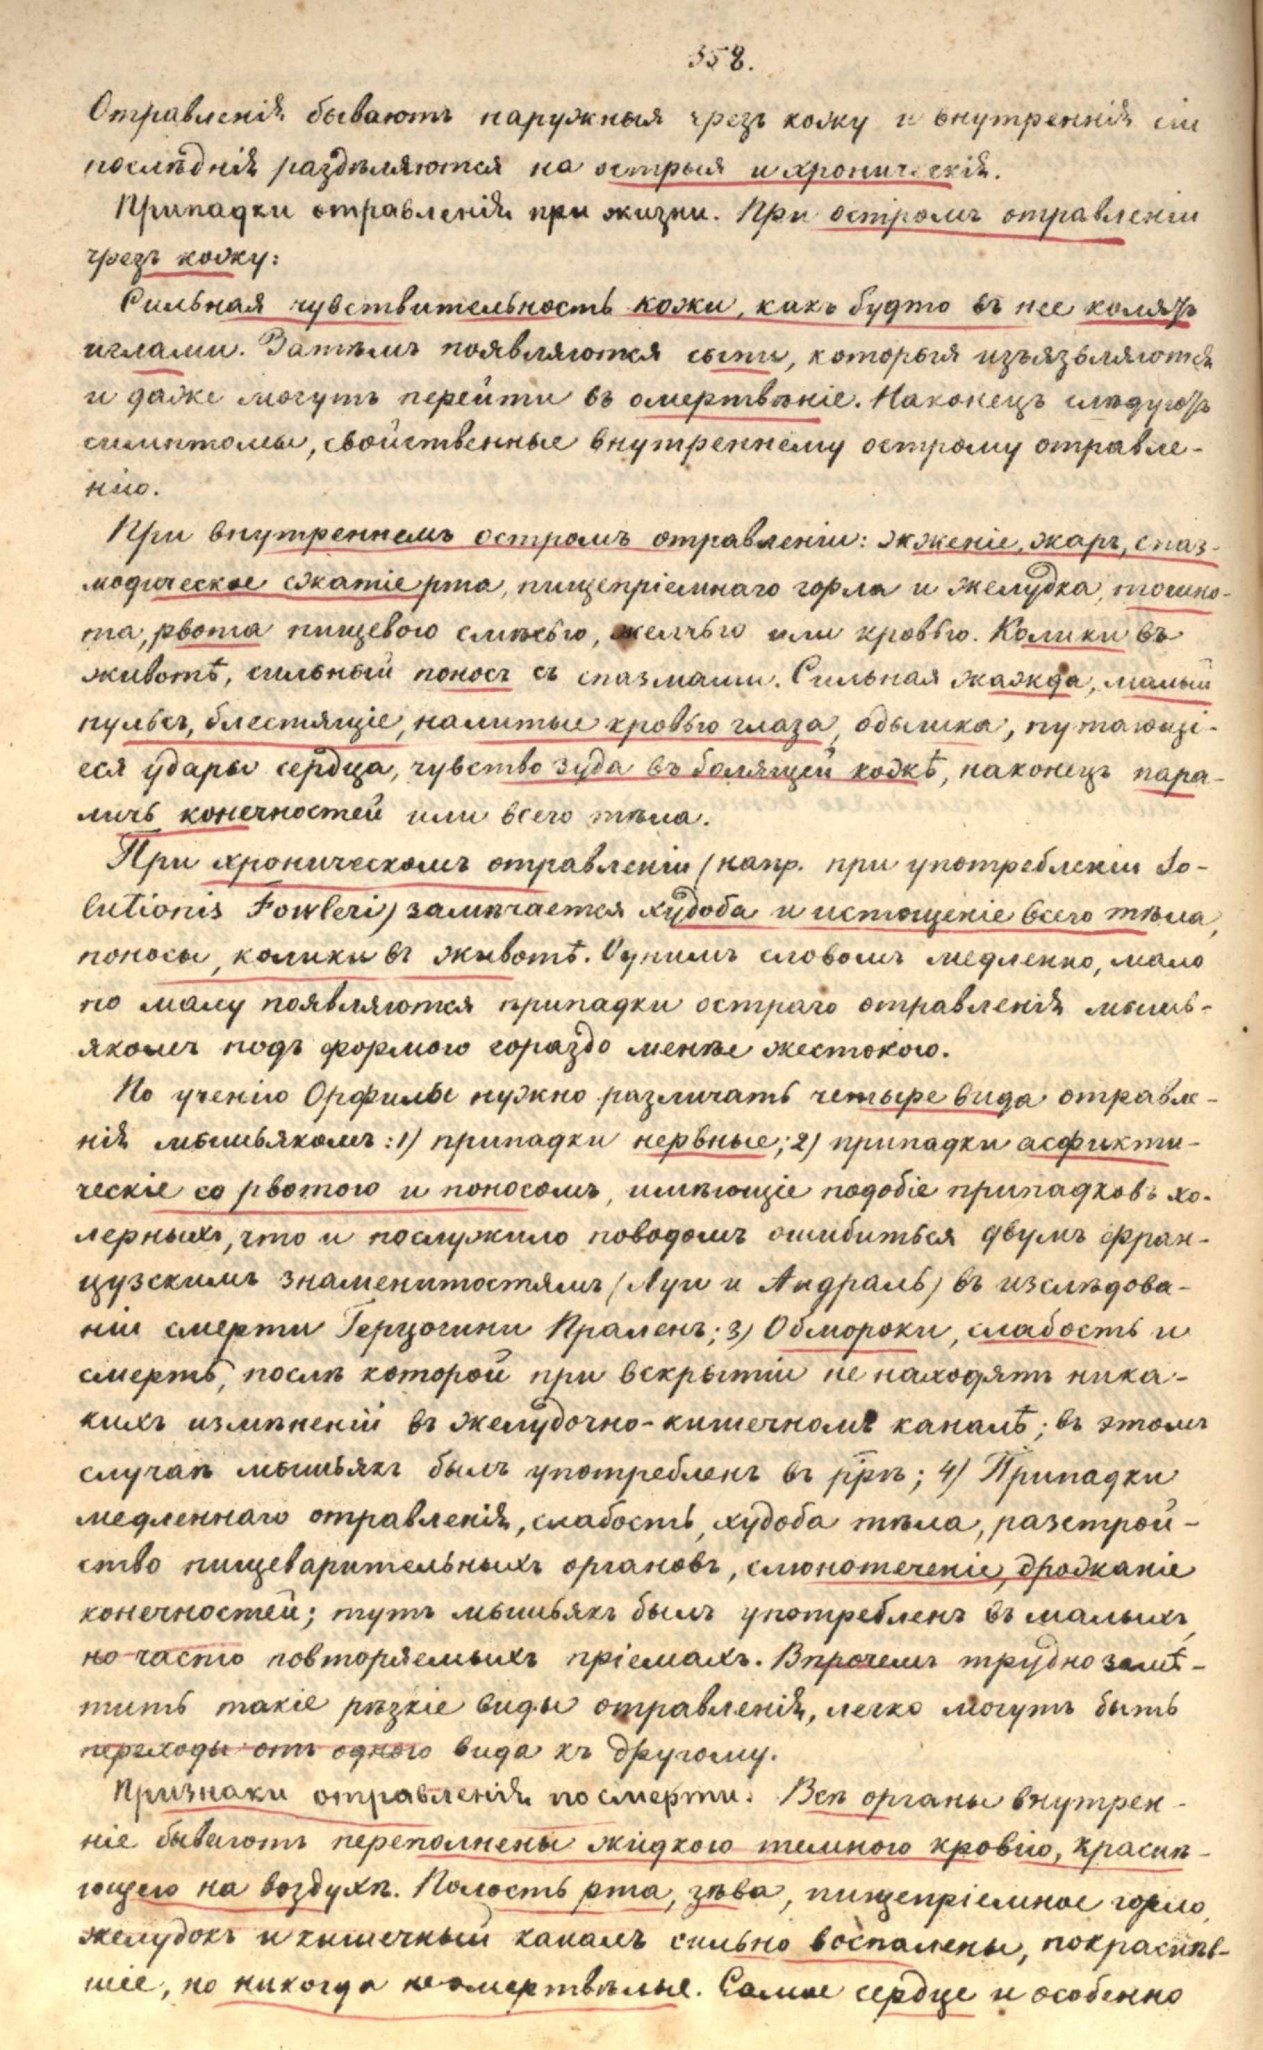 358.
Отравленія бываютъ наружныя чрезъ кожу и внутреннія сіи
послѣднія раздѣляются на острыя и хроническія.
Припадки отравленія при жизни. При остромъ отравленіи
чрезъ кожу:
Сильная чувствительность кожи, какъ будто въ нее колятъ
иглами. Затѣмъ появляются сыпи, которыя изъязвляются
и даже могутъ перейти въ омертвѣніе. Наконецъ слѣдуютъ
симптомы, свойственные внутреннему острому отравле-
нію.
При внутреннемъ остромъ отравленіи: жженіе, жаръ, спаз-
модическое сжатіе рта, пищепріемнаго горла и желудка, тошно-
та, рвота пищевою смѣсью, желчью или кровью. Колики въ
животѣ, сильный поносъ съ спазмами. Сильная жажда, малый
пульсъ, блестящіе, налитые кровью глаза, одышка, путающі-
еся удары сердца, чувство зуда въ болящей кожѣ, наконецъ пара-
личь конечностей или всего тѣла.
При хроническомъ отравленіи (напр. при употребленіи So-
lutionis Fowleri) замѣчается худоба и истощеніе всего тѣла,
поносы, колики въ животѣ. Однимъ словомъ медленно, мало
по малу появляются припадки остраго отравленія мышь-
якомъ подъ формою гораздо менѣе жестокою.
По ученію Орфилы нужно различать четыре вида отравле-
нія мышьякомъ: 1) припадки нервные; 2) припадки асфикти-
ческіе со рвотою и поносомъ, имѣющіе подобіе припадковъ хо-
лерныхъ, что и послужило поводомъ ошибиться двумъ фран-
цузскимъ знаменитостямъ (Луи и Андраль) въ изслѣдова-
ніи смерти Герцогини Праленъ; 3) Обмороки, слабость и
смерть, послѣ которой при вскрытіи не находятъ ника-
кихъ измѣненій въ желудочно-кишечномъ каналѣ; въ этомъ
случаѣ мышьякъ былъ употребленъ въ ррѣ; 4) Припадки
медленнаго отравленія, слабость, худоба тѣла, разстрой-
ство пищеварительныхъ органовъ, слюнотеченіе, дрожаніе
конечностей; тутъ мышьякъ былъ употребленъ въ малыхъ,
но часто повторяемыхъ пріемахъ. Впрочемъ трудно замѣ-
тить такіе рѣзкіе виды отравленія, легко могутъ быть
переходы отъ одного вида къ другому.
Признаки отравленія по смерти. Всѣ органы внутрен-
ніе бываютъ переполнены жидкою темною кровію, краснѣ-
ющею на воздухѣ. Полость рта, зѣва, пищепріемное горло,
желудокъ и кишечный каналъ сильно воспалены, покраснѣв-
шіе, но никогда не омертвѣлые. Самое сердце и особенно